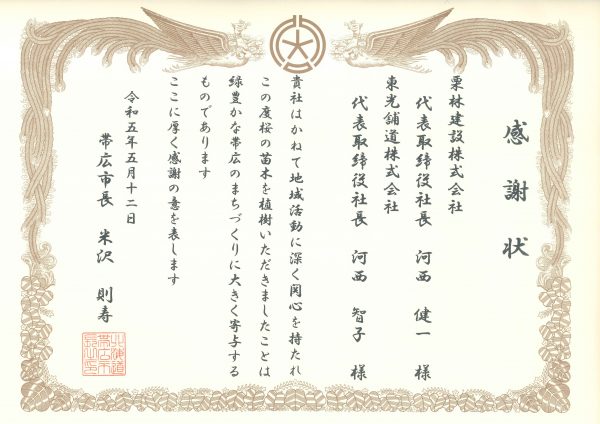 感謝状
栗林建設株式会社
代表取締役社長 河西 健一 様
東光舗道株式会社
代表取締役社長 河西 智子 様
貴社はかねて地域活動に深く関心を持たれ
この度桜の苗木を植樹いただきましたことは
緑豊かな帯広のまちづくりに大きく寄与する
ものであります
ここに厚く感謝の意を表します
令和五年五月十二日
帯広市長 米沢 則寿
北海道
帯広市
長之印